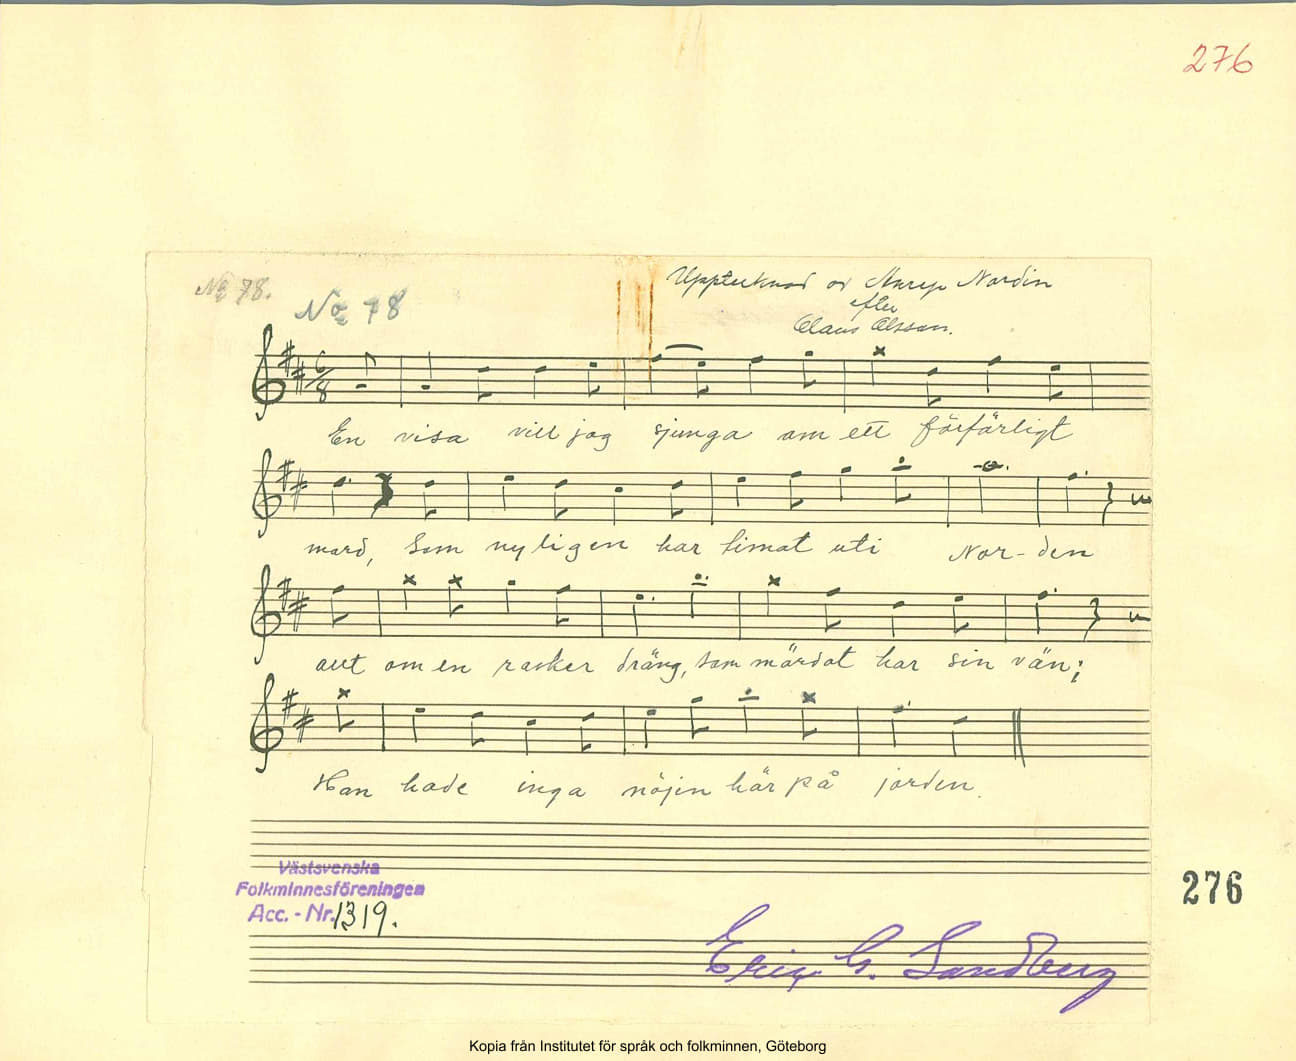 276
No 78.
No 78
Upptecknad av Nordin
efter
Claus Olsson.
6/8
En visa vill jag sjunga om ett förfärligt
mord, Som nyligen har timat uti Nor-den
allt om en rasker dräng, som mördat har sin vän;
Han hade inga nöjen här på jorden.
Västsvenska
Folkminnesföreningen
Acc. - Nr. 1319.
276
Erix G. Sandberg
Kopia från Institutet för språk och folkminnen, Göteborg